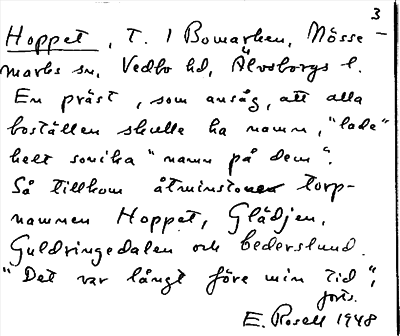 3
Hoppet, T. 1 Bomarken, Nösse
marks sn, Vedbo hd, Älvsborgs l.
En präst, som ansåg, att alla
boställen skulle ha namn, "lade"
helt sonika "namn på dem".
Så tillkom åtminstone torp-
namnen Hoppet, Glädjen,
Guldringedalen och Bederslund.
"Det var långt före min tid",
forts.
E. Rosell 1948